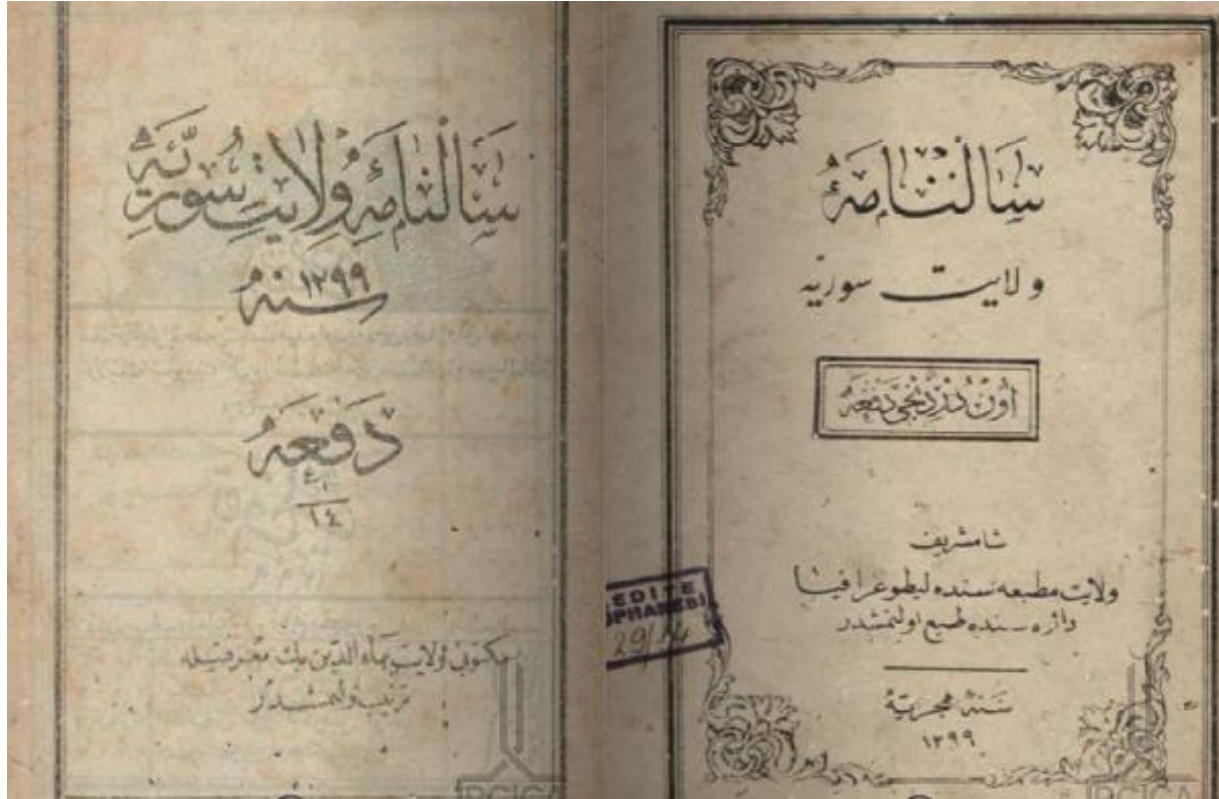 سالنامهٔ
ولايت سوريه
اون دردنجى دفعه
شامشريف
ولايت مطبعه سنده ليطوغرافيا
دائره سنده طبع اولنمشدر
سنهٔ هجريه
١٢٩٩
29/14
سالنامهٔ ولايت سوريه
سنه ١٢٩٩
دفعه
١٤
مكتوبى ولايت بهاء الدين بك معرفتيله
ترتيب اولنمشدر
IRCICA
IRCICA